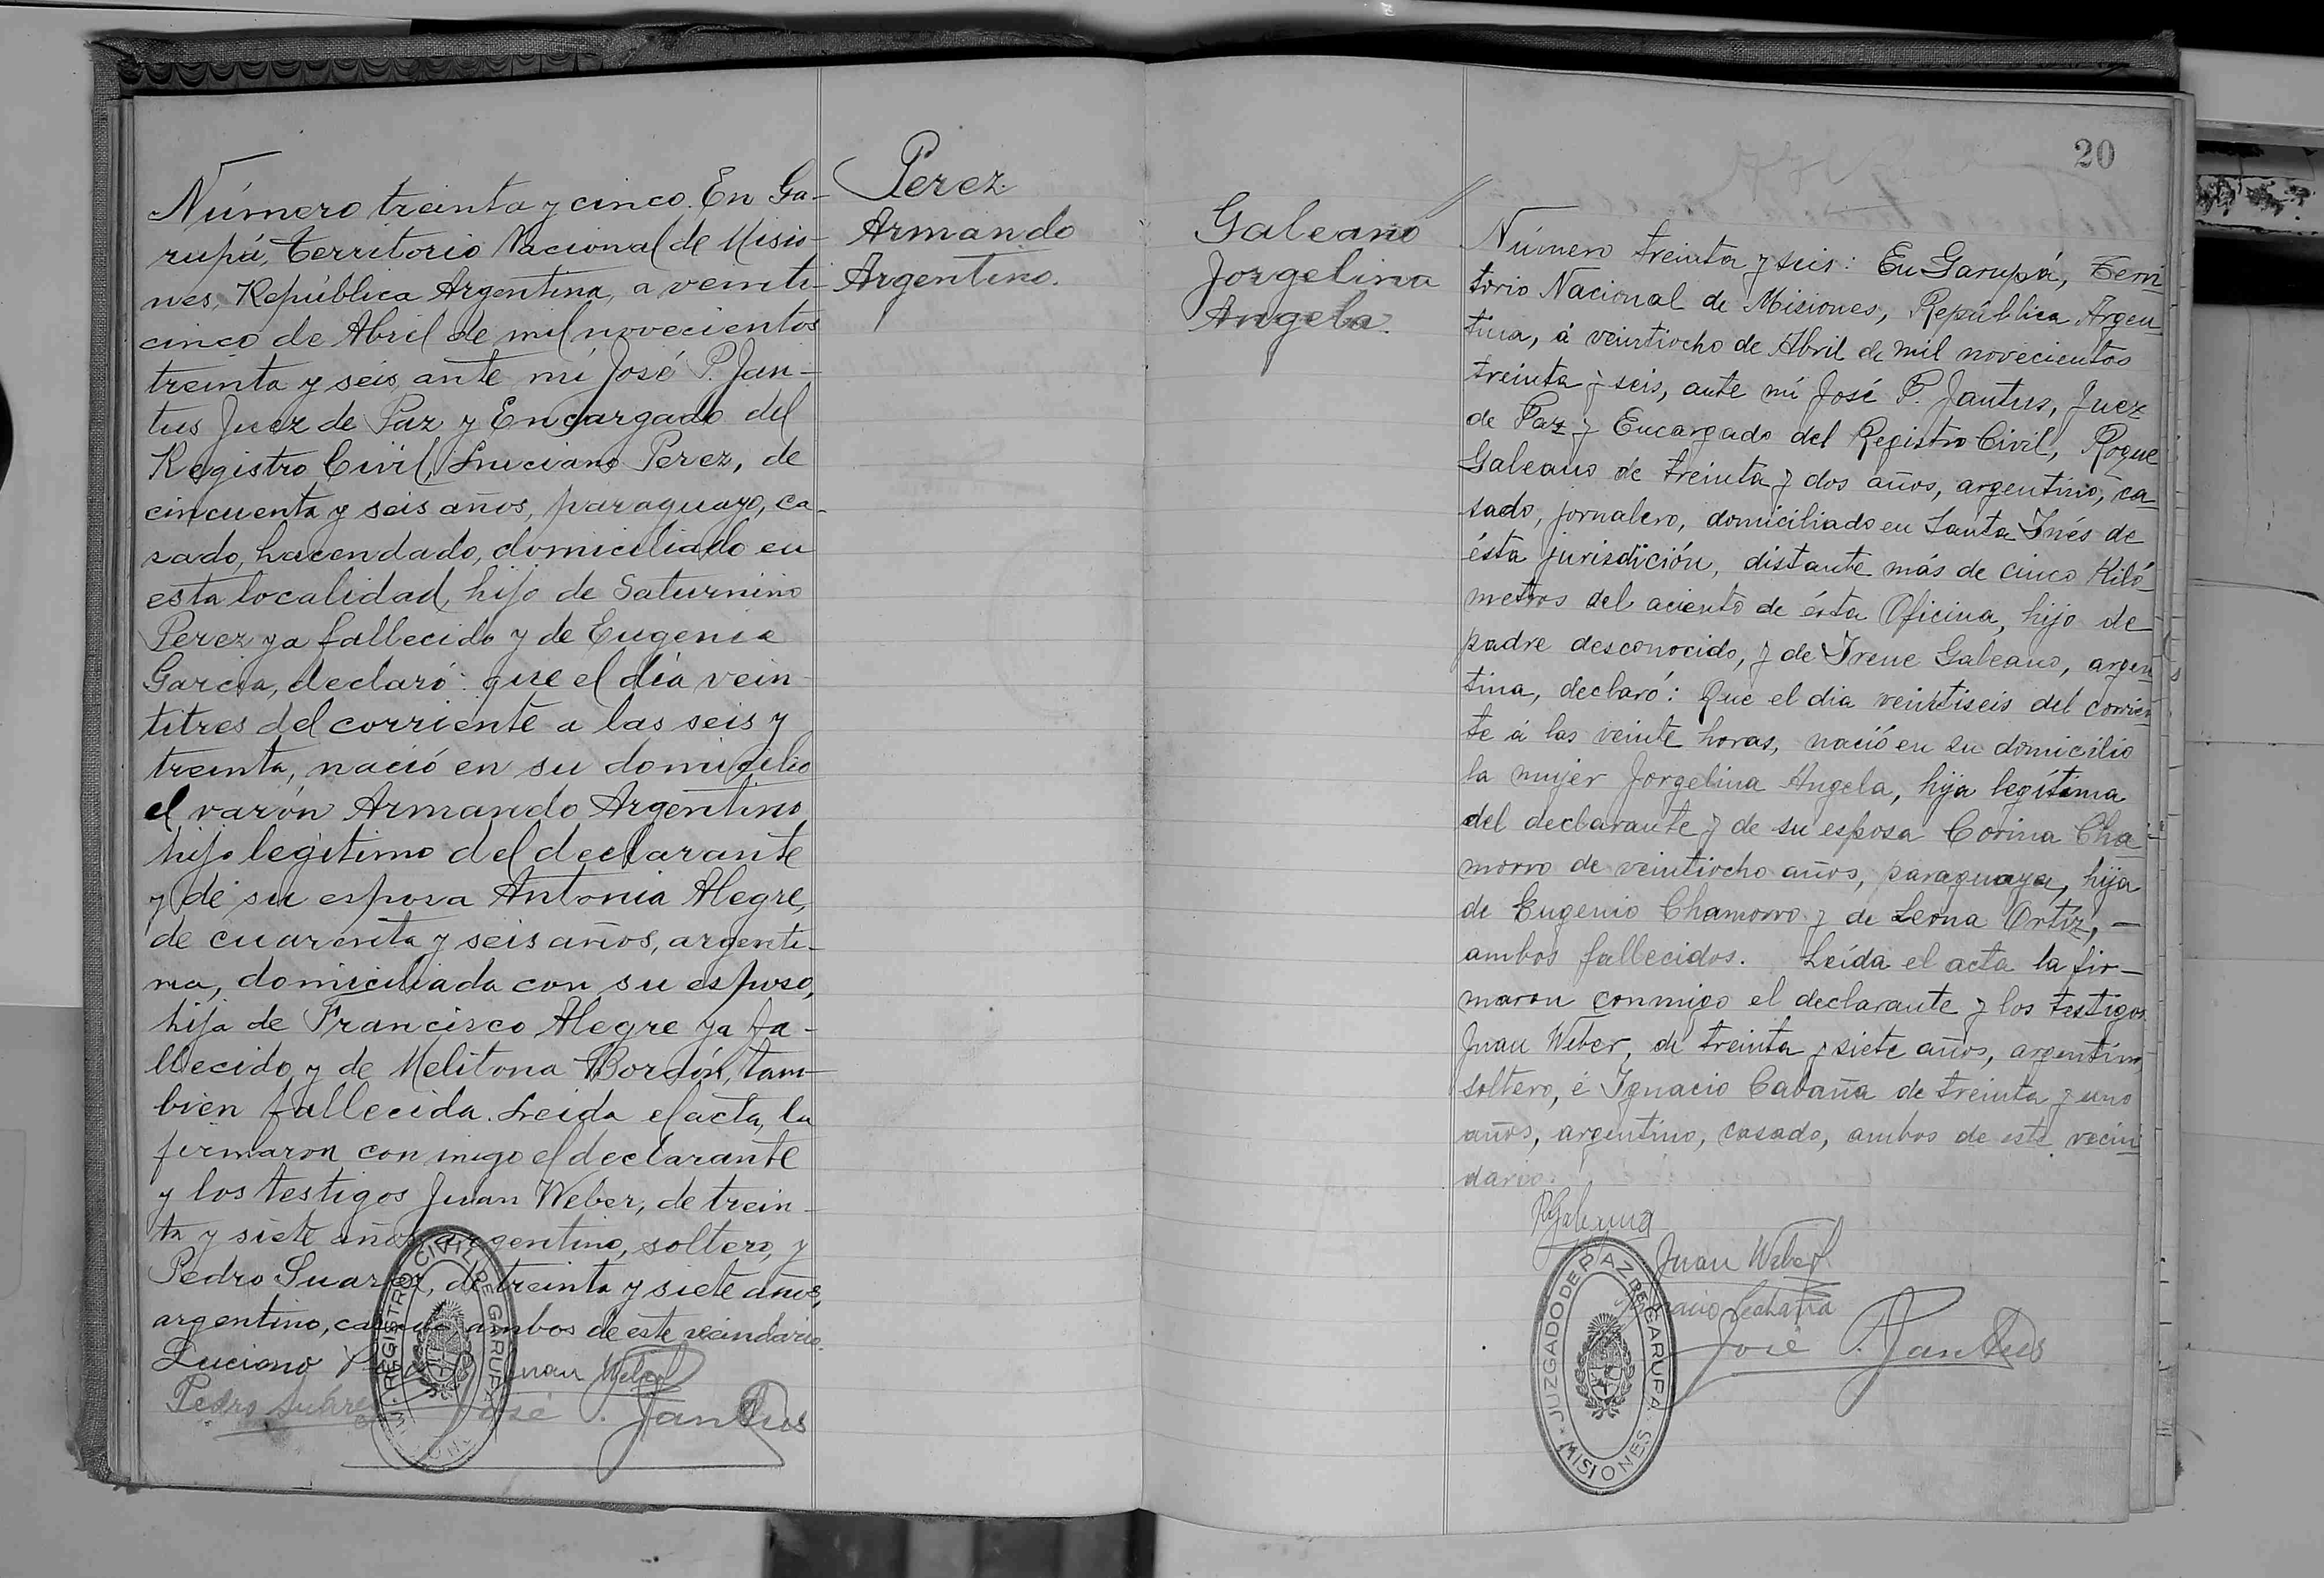 Número treinta y cinco. En Ga-
rupá, Territorio Nacional de Misio-
nes, República Argentina, a veinti-
cinco de Abril de mil novecientos
treinta y seis, ante mí José P. Jan-
tus Juez de Paz y Encargado del
Registro Civil, Luciano Perez, de
cincuenta y seis años, paraguayo, ca-
sado, hacendado, domiciliado en
esta localidad, hijo de Saturnino
Perez ya fallecido y de Eugenia
Garcia, declaró: que el día vein-
titres del corriente a las seis y
treinta, nació en su domicilio
el varón Armando Argentino
hijo legítimo del declarante
y de su esposa Antonia Alegre,
de cuarenta y seis años, argenti-
na, domiciliada con su esposo,
hija de Francisco Alegre ya fa-
llecido y de Melitona Bordón, tam-
bien fallecida. Leida el acta, la
firmaron conmigo el declarante
y los testigos Juan Weber, de trein-
ta y siete años argentino, soltero, y
Pedro Suarez, de treinta y siete años,
argentino, casado ambos de este vecindario.
Luciano Juan Weber
Pedro Suárez José P. Jantus
REGISTRO CIVIL DE GARUPA
Perez
Armando
Argentino.
20
Galeano
Jorgelina
Angela.
Número treinta y seis: En Garupá, Terri
torio Nacional de Misiones, República Argen
tina, á veintiocho de Abril de mil novecientos
treinta y seis, ante mí José P. Jantus, Juez
de Paz y Encargado del Registro Civil, Roque
Galeano de treinta y dos años, argentino, ca
sado, jornalero, domiciliado en Santa Inés de
ésta jurisdición, distante más de cinco Kiló
metros del aciento de ésta Oficina, hijo de
padre desconocido, y de Irene Galeano, argen
tina, declaró: Que el dia veintiseis del corrien
te á las veinte horas, nació en su domicilio
la mujer Jorgelina Angela, hija legítima
del declarante y de su esposa Corina Cha
morro de veintiocho años, paraguaya, hija
de Eugenio Chamorro y de Leona Ortíz, —
ambos fallecidos. Leída el acta la fir—
maron conmigo el declarante y los testigos
Juan Weber, de treinta y siete años, argentino
soltero, é Ignacio Cabaña de treinta y uno
años, argentino, casado, ambos de este vecin
dario.
Juan Weber
José P. Jantus
JUZGADO DE PAZ DE GARUPA
MISIONES